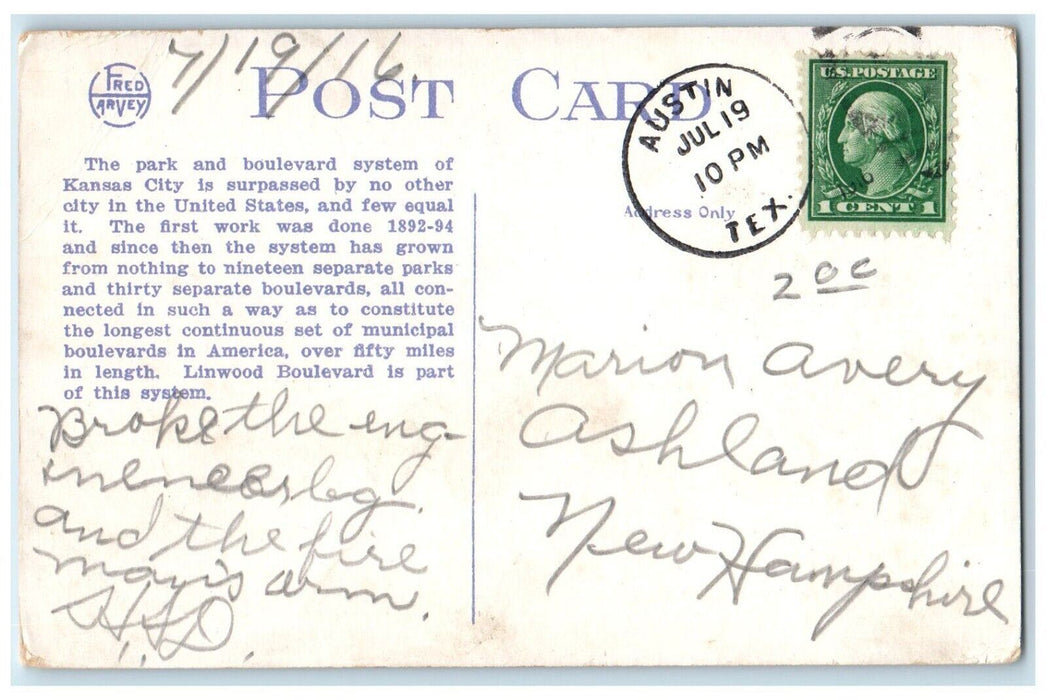 7/19/16.
FRED
HARVEY
POST CARD
AUSTIN
JUL 19
10 PM
TEX.
U.S. POSTAGE
1 CENT 1
Address Only
The park and boulevard system of
Kansas City is surpassed by no other
city in the United States, and few equal
it. The first work was done 1892-94
and since then the system has grown
from nothing to nineteen separate parks
and thirty separate boulevards, all con-
nected in such a way as to constitute
the longest continuous set of municipal
boulevards in America, over fifty miles
in length. Linwood Boulevard is part
of this system.
Broke the eng-
ineneers leg.
and the fire
man's arm.
2 00 c
Marion Avery
Ashland
New Hampshire